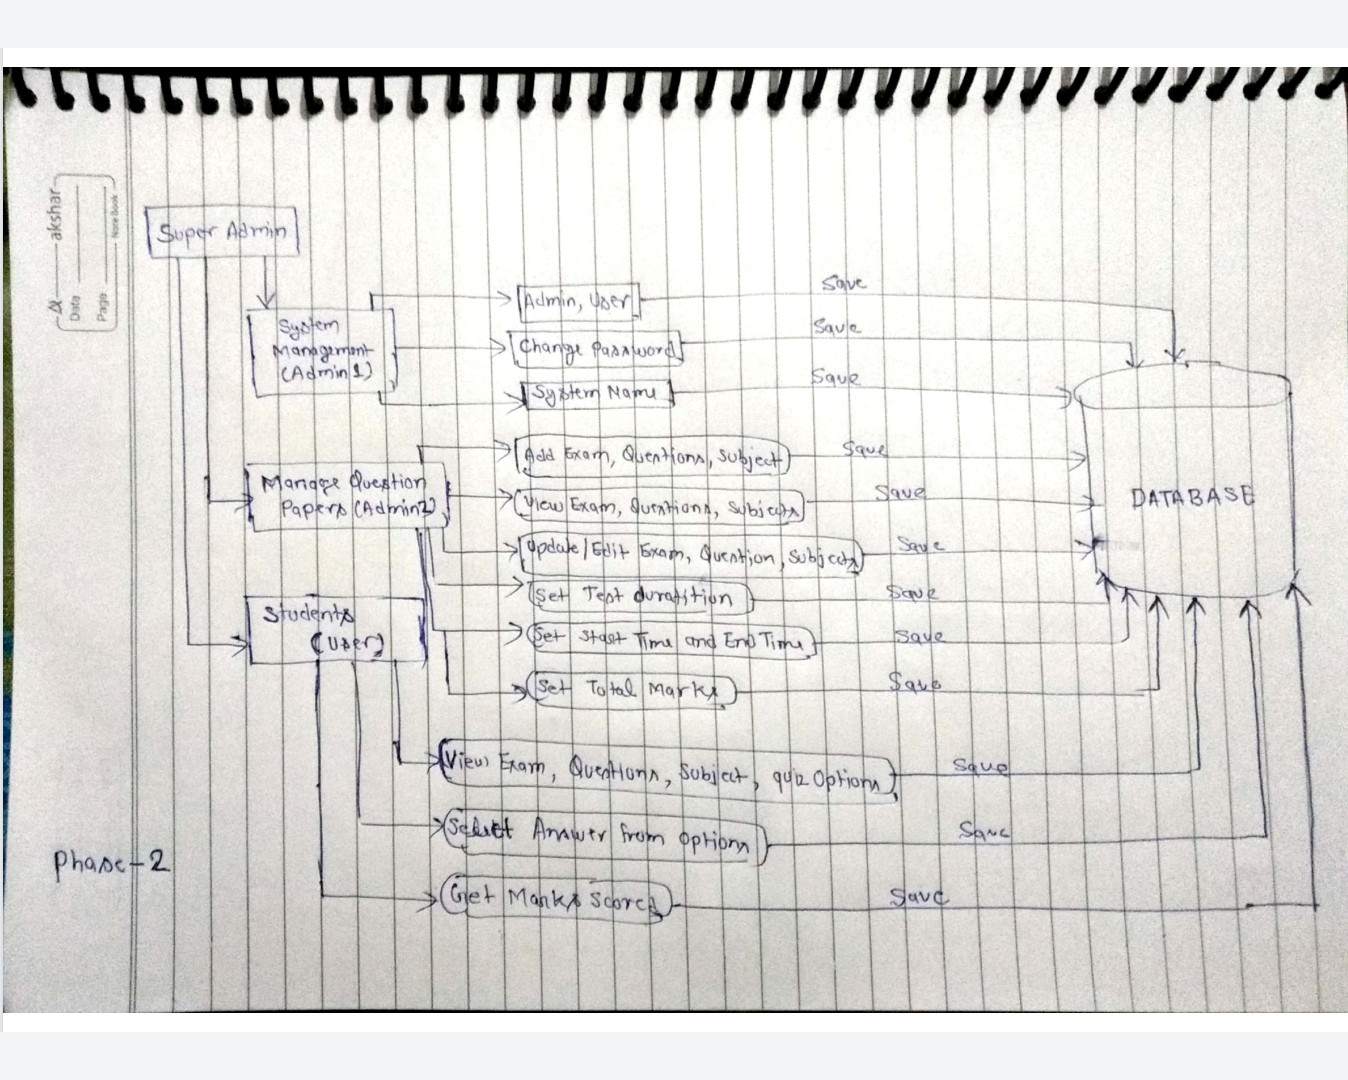 akshar
Data
Page
Note Book
Super Admin
System
Management
(Admin1)
Admin, User
Save
Change Password
Save
System Name
Save
Manage Question
Papers (Admin2)
Add Exam, Questions, Subject
Save
View Exam, Questions, Subjects
Save
Update/Edit Exam, Question, Subjects
Save
Set Test duratition
Save
Set Start Time and End Time
Save
Set Total Marks
Save
DATABASE
Students
(User)
View Exam, Questions, Subject, quiz Options
Save
Select Answer from Options
Save
Get Marks Scores
Save
Phase-2